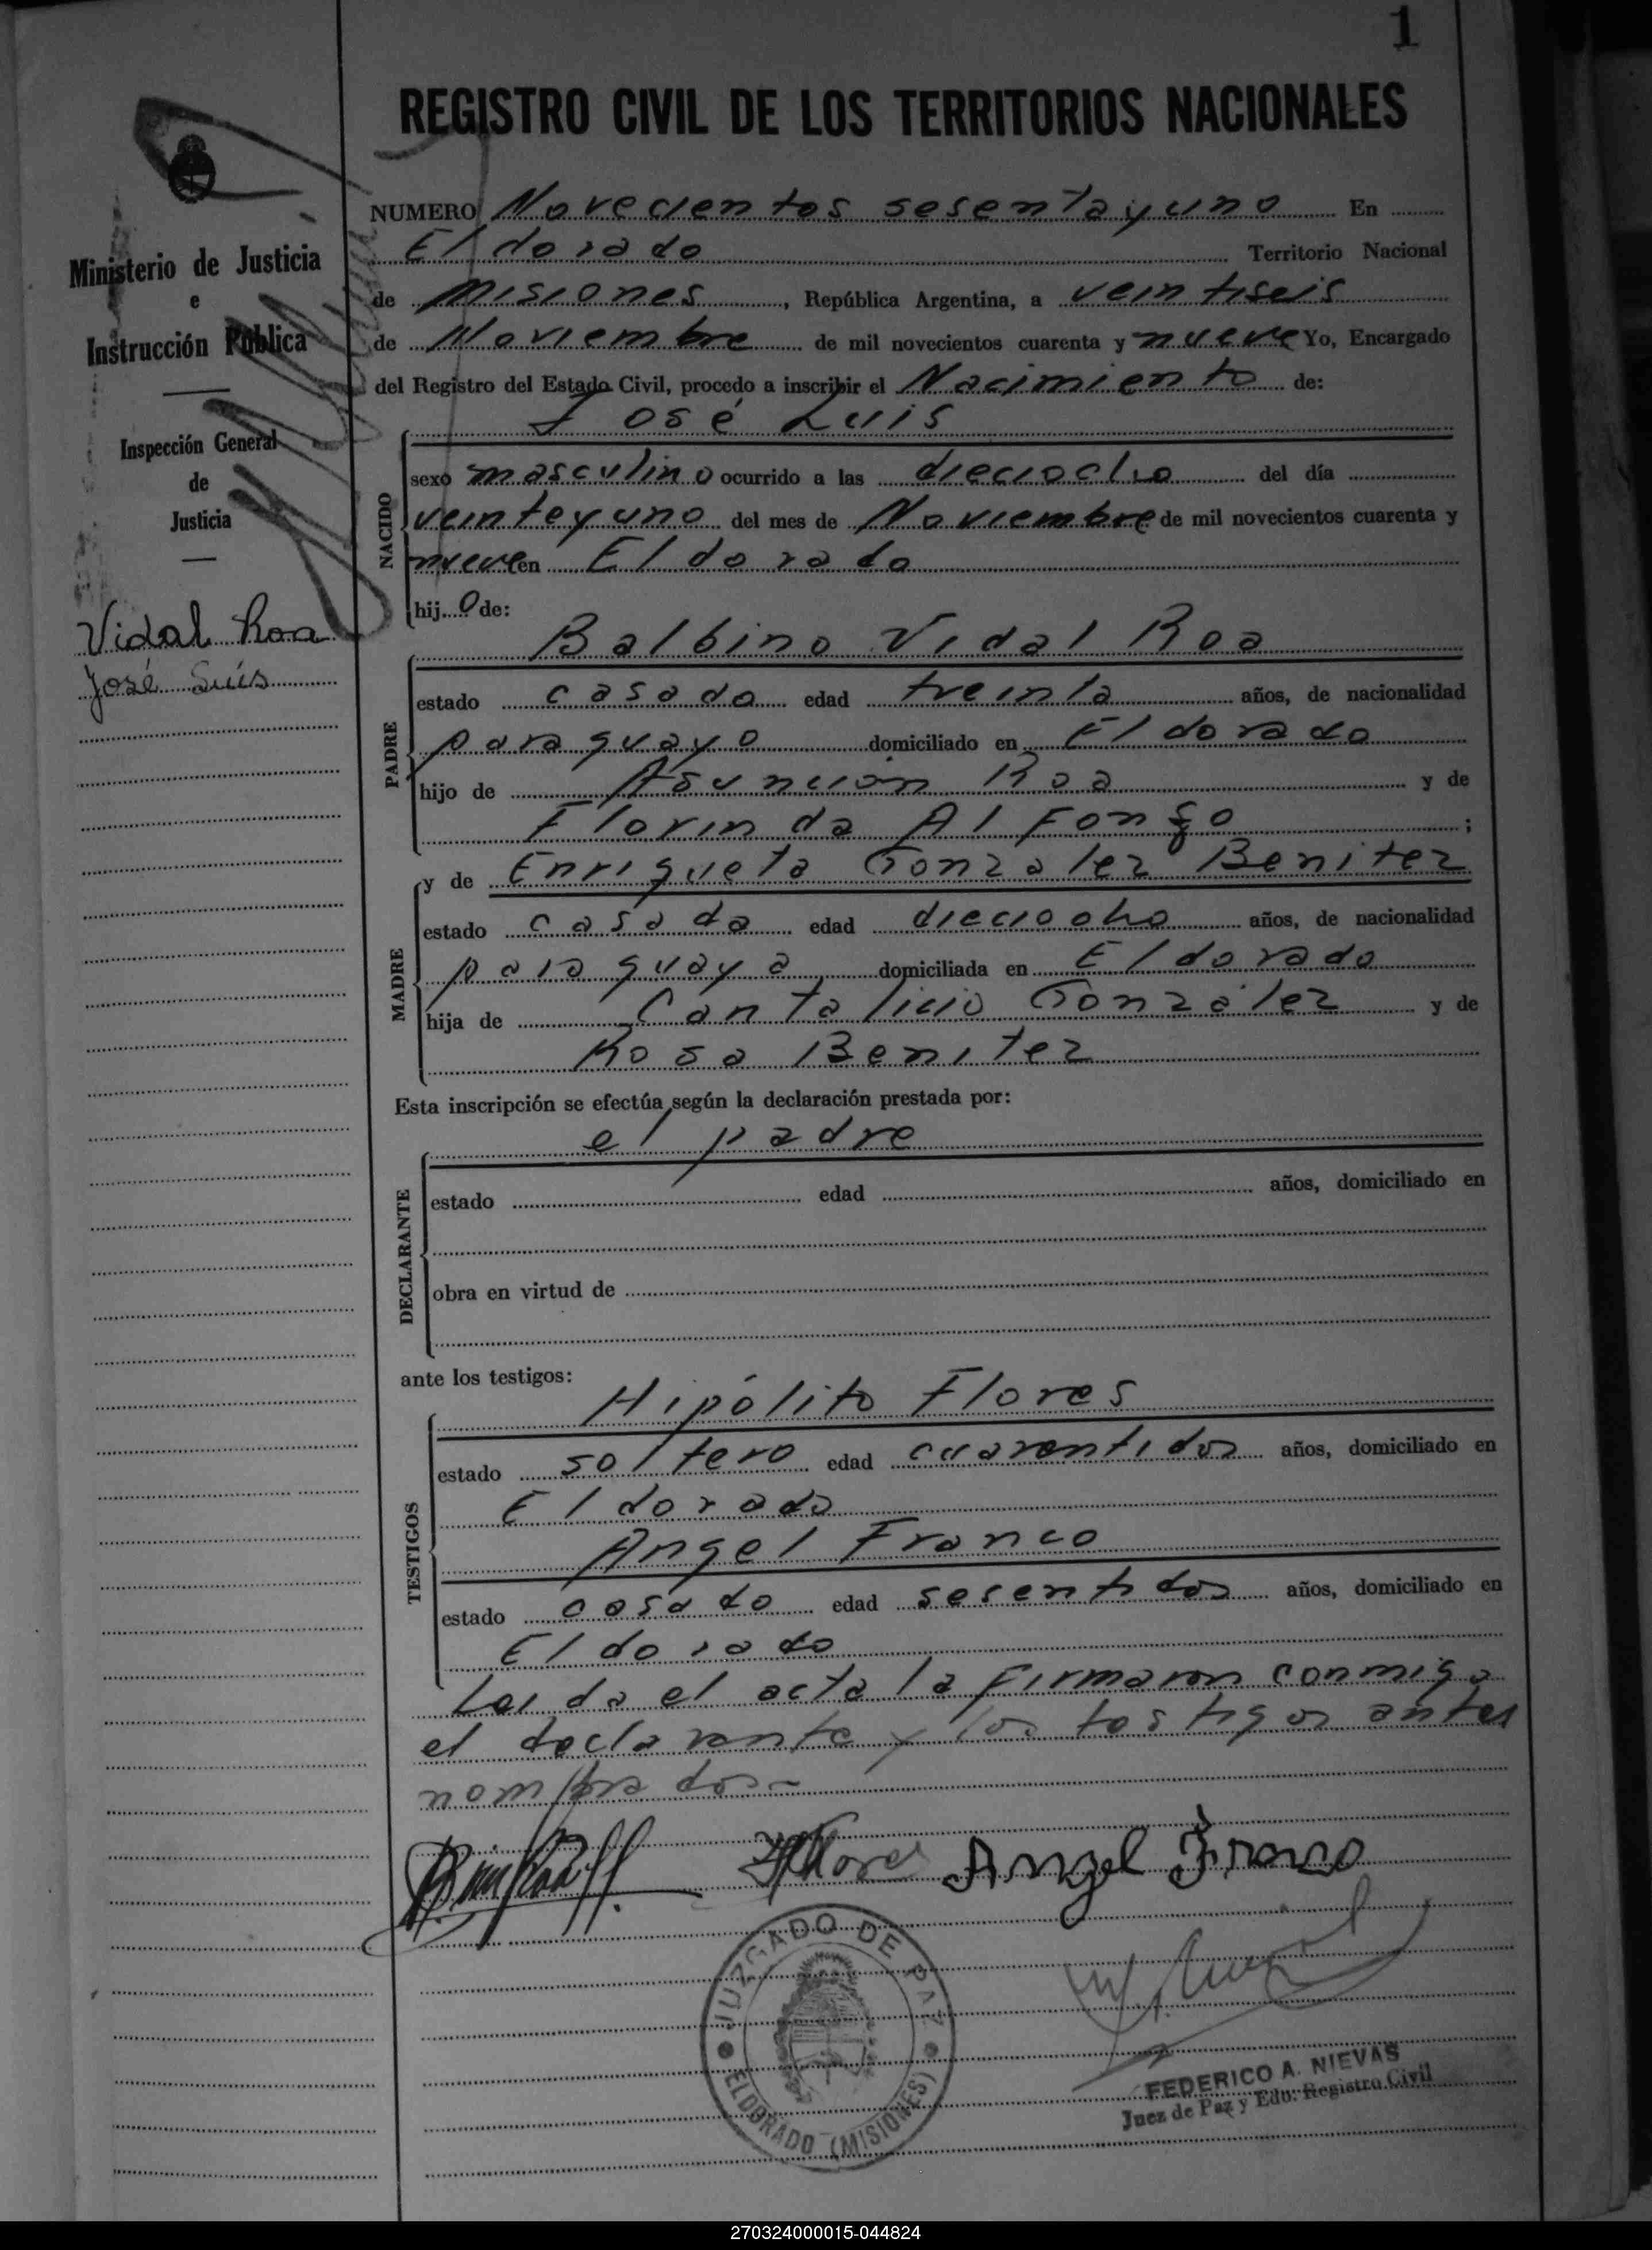 1
REGISTRO CIVIL DE LOS TERRITORIOS NACIONALES
Ministerio de Justicia
e
Instrucción Pública
Inspección General
de
Justicia
Vidal Roa
José Luis
NUMERO Novecientos sesenta y uno En
Eldorado Territorio Nacional
de Misiones, República Argentina, a veintiseis
de Noviembre de mil novecientos cuarenta y nueve Yo, Encargado
del Registro del Estado Civil, procedo a inscribir el Nacimiento de:
José Luis
NACIDO
sexo masculino ocurrido a las dieciocho del día
veinte y uno del mes de Noviembre de mil novecientos cuarenta y
nueve en Eldorado
hijo de:
Balbino Vidal Roa
PADRE
estado casado edad treinta años, de nacionalidad
paraguayo domiciliado en Eldorado
hijo de Asunción Roa y de
Florinda Alfonso;
y de Enriqueta Gonzalez Benitez
MADRE
estado casada edad dieciocho años, de nacionalidad
paraguaya domiciliada en Eldorado
hija de Cantalicio González y de
Rosa Benitez
Esta inscripción se efectúa según la declaración prestada por:
el padre
DECLARANTE
estado edad años, domiciliado en
obra en virtud de
ante los testigos:
Hipólito Flores
TESTIGOS
estado soltero edad cuarentidos años, domiciliado en
Eldorado
Angel Franco
estado casado edad sesentidos años, domiciliado en
Eldorado
Leída el acta la firmaron conmigo
el declarante y los testigos antes
nombrados-
HFlores Angel Franco
JUZGADO DE PAZ
ELDORADO (MISIONES)
FEDERICO A. NIEVAS
Juez de Paz y Edo: Registro Civil
270324000015-044824